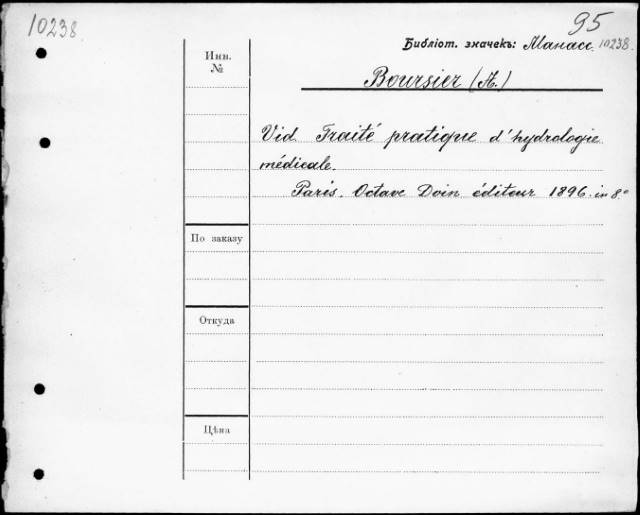 10238
95
Библіот. значекъ: Манасс. 10238.
Инв.
№
Boursier (A.)
Vid. Traité pratique d'hydrologie
médicale.
Paris. Octave Doin éditeur 1896. in 8.°
По заказу
Откуда
Цѣна